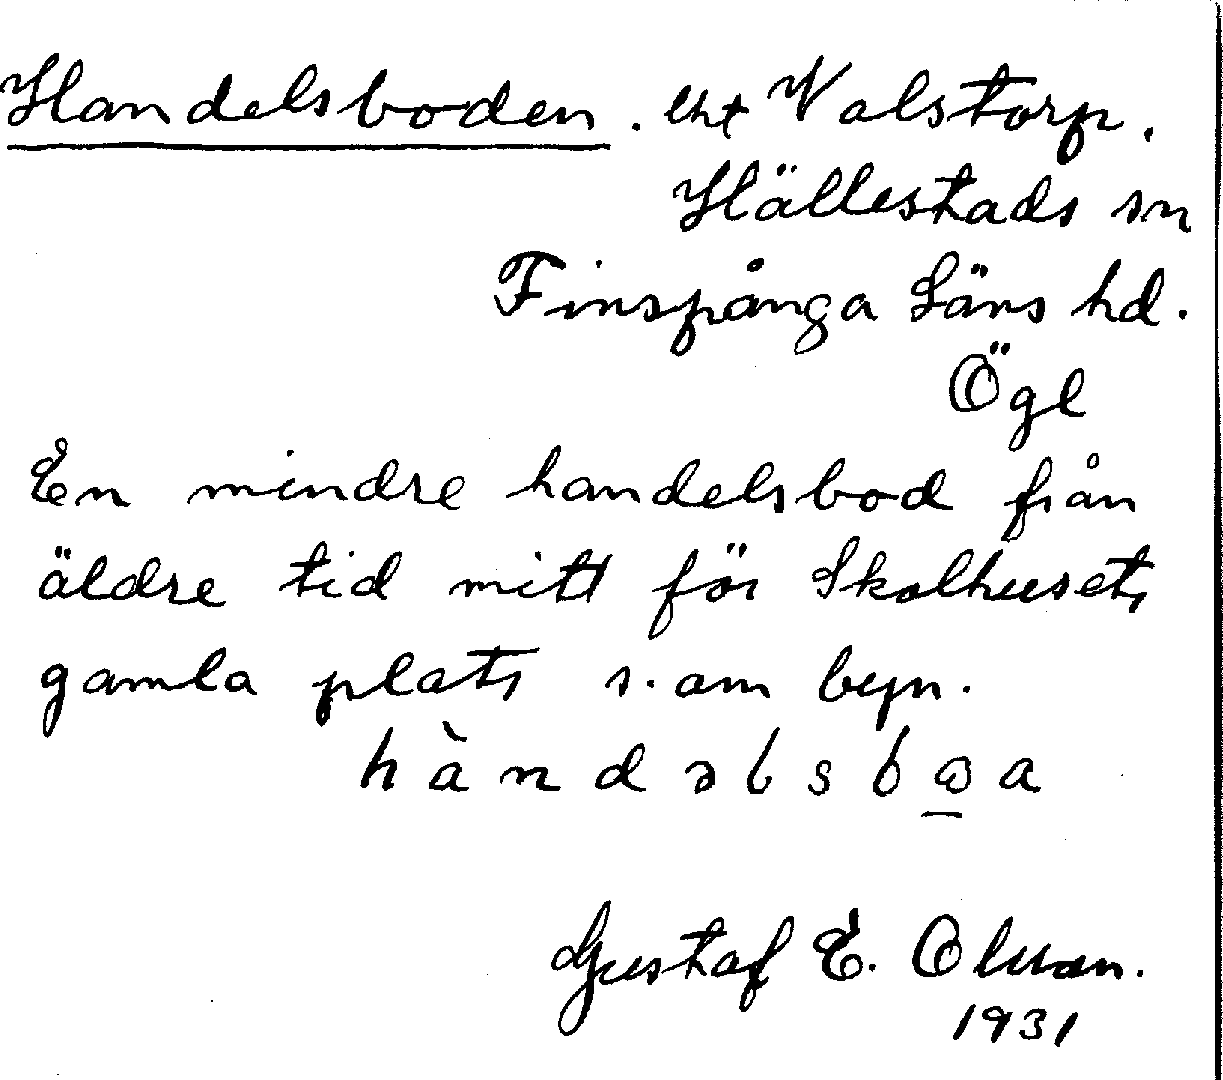 Handelsboden. lht Valstorp.
Hällestads sn
Finspånga Läns hd.
Ögl
En mindre handelsbod från
äldre tid mitt för Skolhusets
gamla plats s.om byn.
hàndəlsbωa
Gustaf E. Olsson.
1931